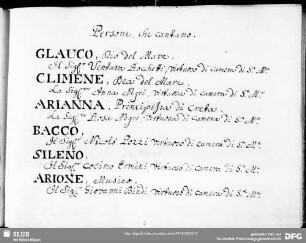 Persone, che cantano.
GLAUCO, Dio del Mare.
Il Sigr. Ventura Rochetti, virtuoso di camera di S. M.
CLIMENE, Dea del Mare.
La Sigra. Anna Negri, virtuosa di camera di S. M.
ARIANNA, Principessa di Creta.
La Sigra. Rosa Negri, virtuosa di camera di S. M.
BACCO,
Il Sigr. Nicolò Pozzi virtuoso di camera di S. M.
SILENO,
Il Sigr. Cosimo Ermini virtuoso di camera di S. M.
ARIONE, Musico.
Il Sigr. Giovanni Bindi virtuoso di camera di S. M.
SLUB
Wir führen Wissen.
DFG